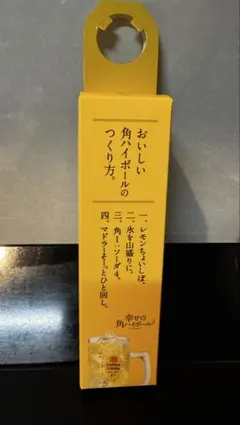 おいしい
角ハイボールの
つくり方。
一、レモンちょいしぼ。
二、氷を山盛りに。
三、角1:ソーダ4。
四、マドラーそーっとひと回し。
幸せの
角ハイボール